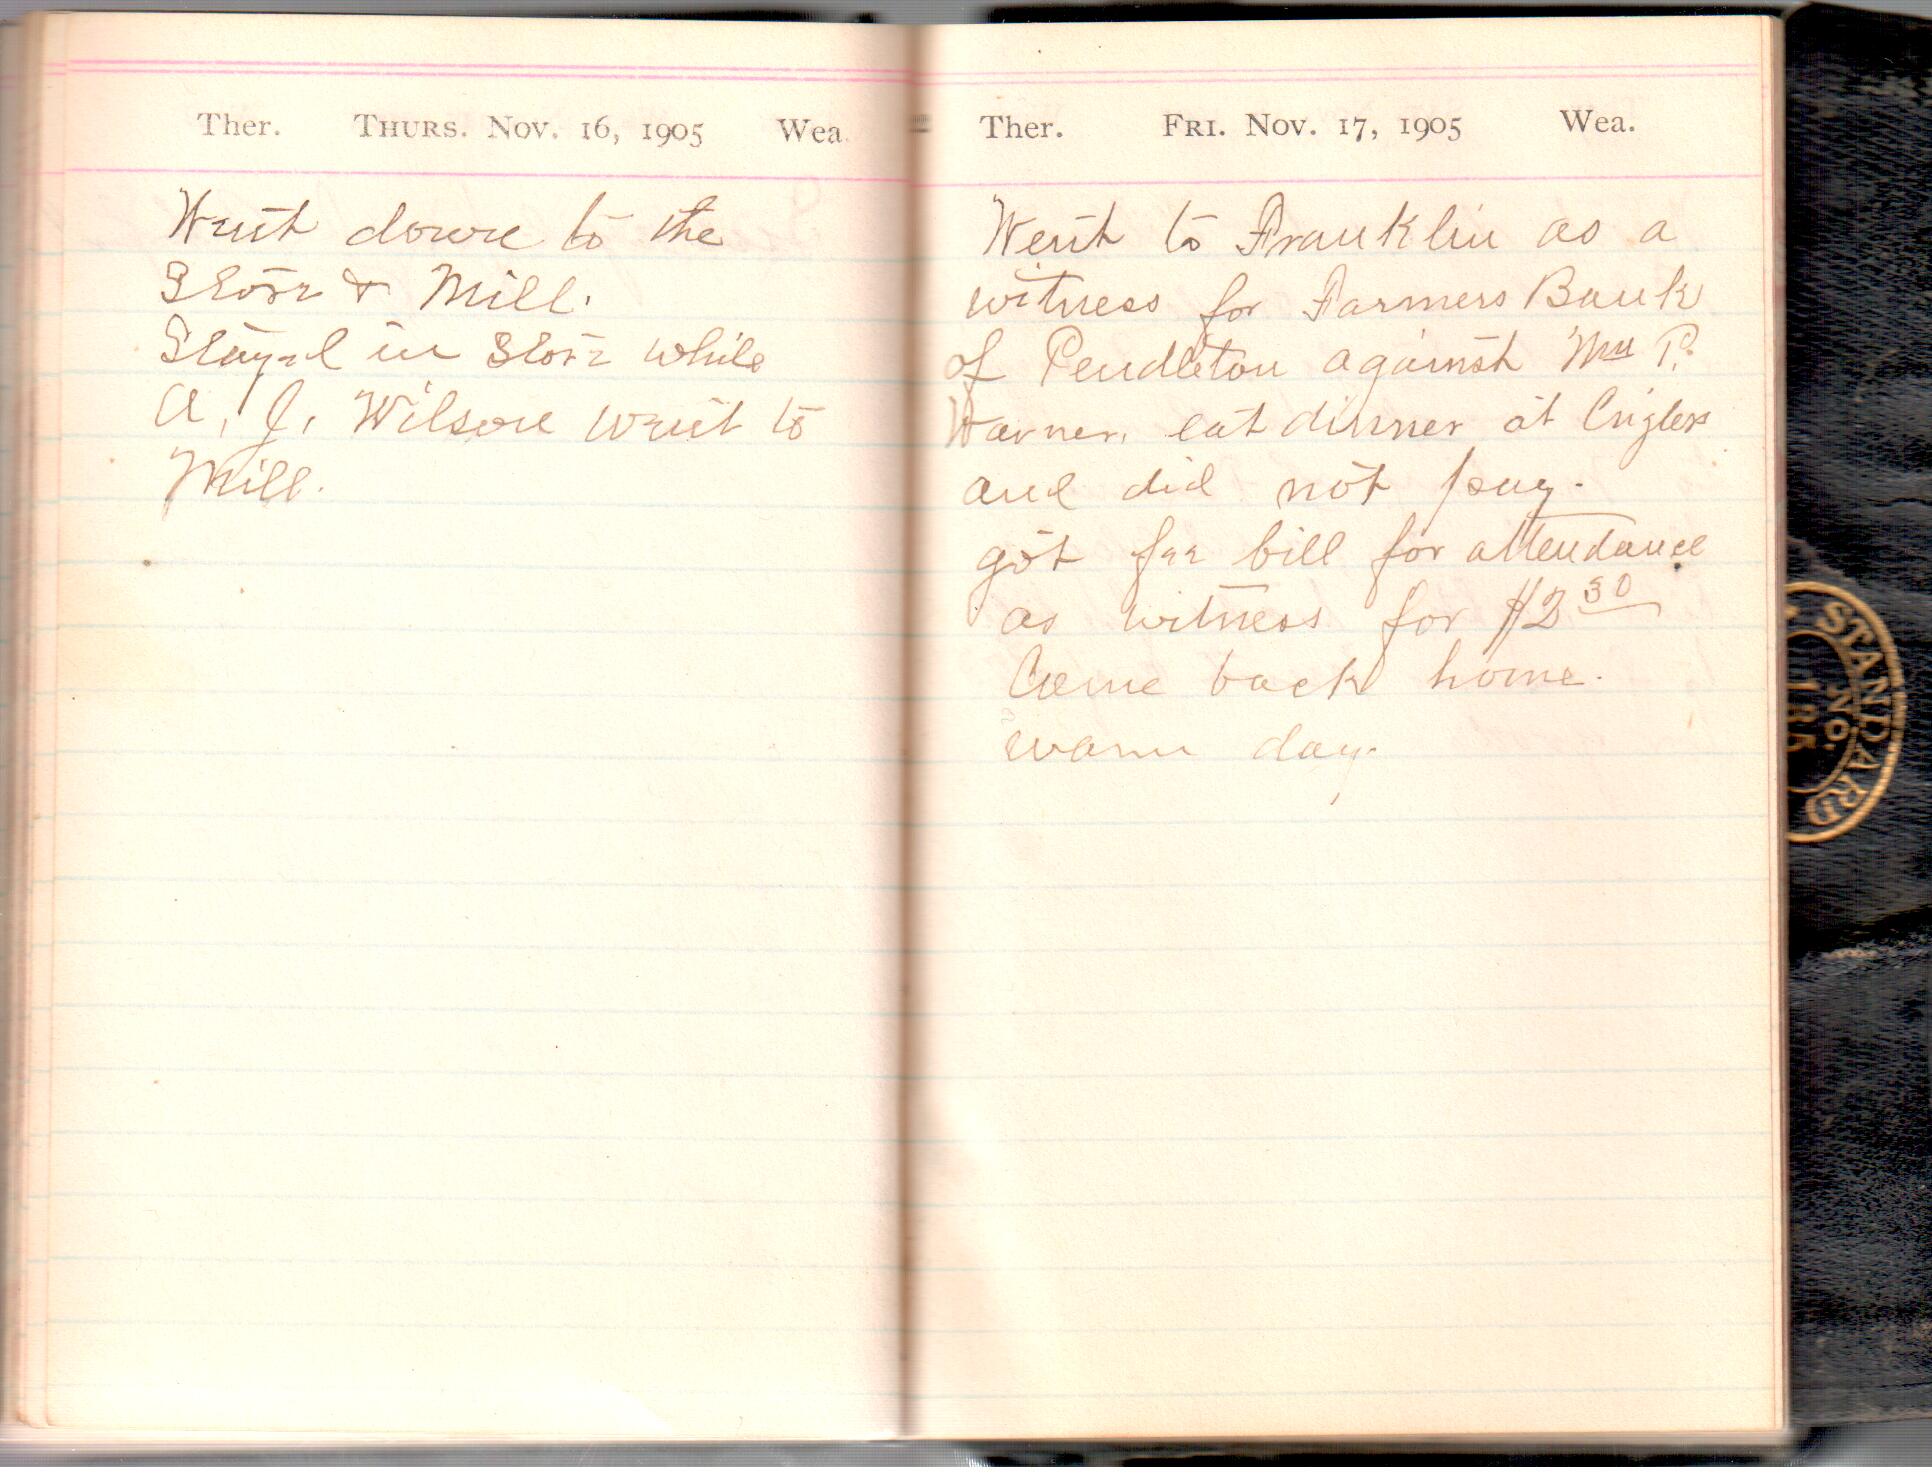 Ther. THURS. NOV. 16, 1905 Wea.
Went down to the
Store & Mill.
Stayed in Store while
A. J. Wilson went to
Mill.
Ther. FRI. NOV. 17, 1905 Wea.
Went to Franklin as a
witness for Farmers Bank
of Pendleton against Wm P.
Warner, eat dinner at Criglers
and did not pay.
got fee bill for attendance
as witness for $2 30
Come back home.
warm day.
STANDARD
NO.
185